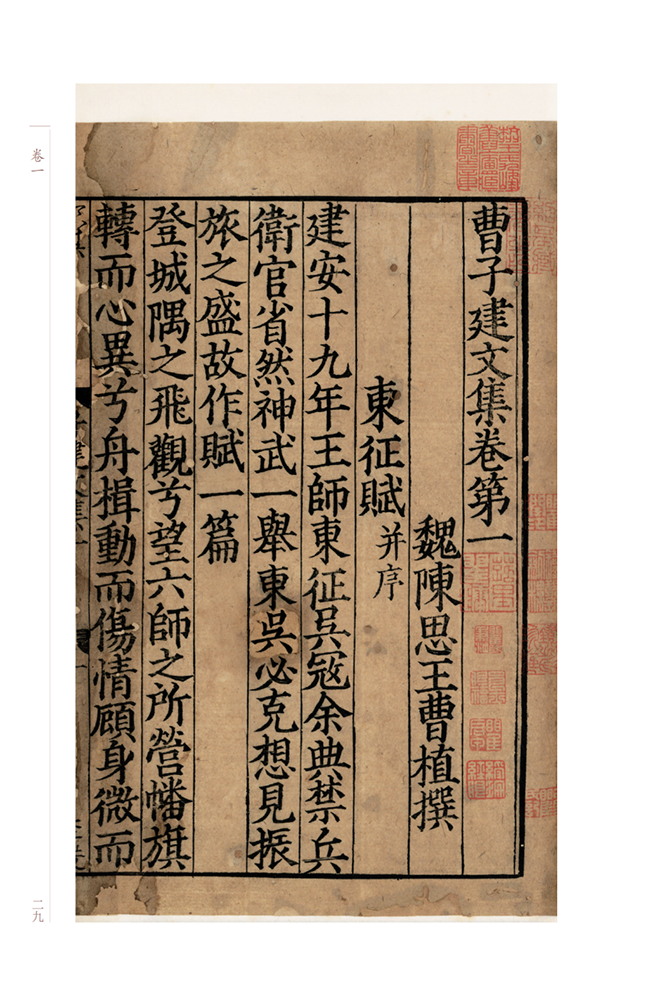 曹子建文集卷第一
魏陳思王曹植撰
東征賦并序
建安十九年王師東征吳寇余典禁兵
衛官省然神武一舉東吳必克想見振
旅之盛故作賦一篇
登城隅之飛觀兮望六師之所營幡旗
轉而心異兮舟楫動而傷情顧身微而
卷一
二九